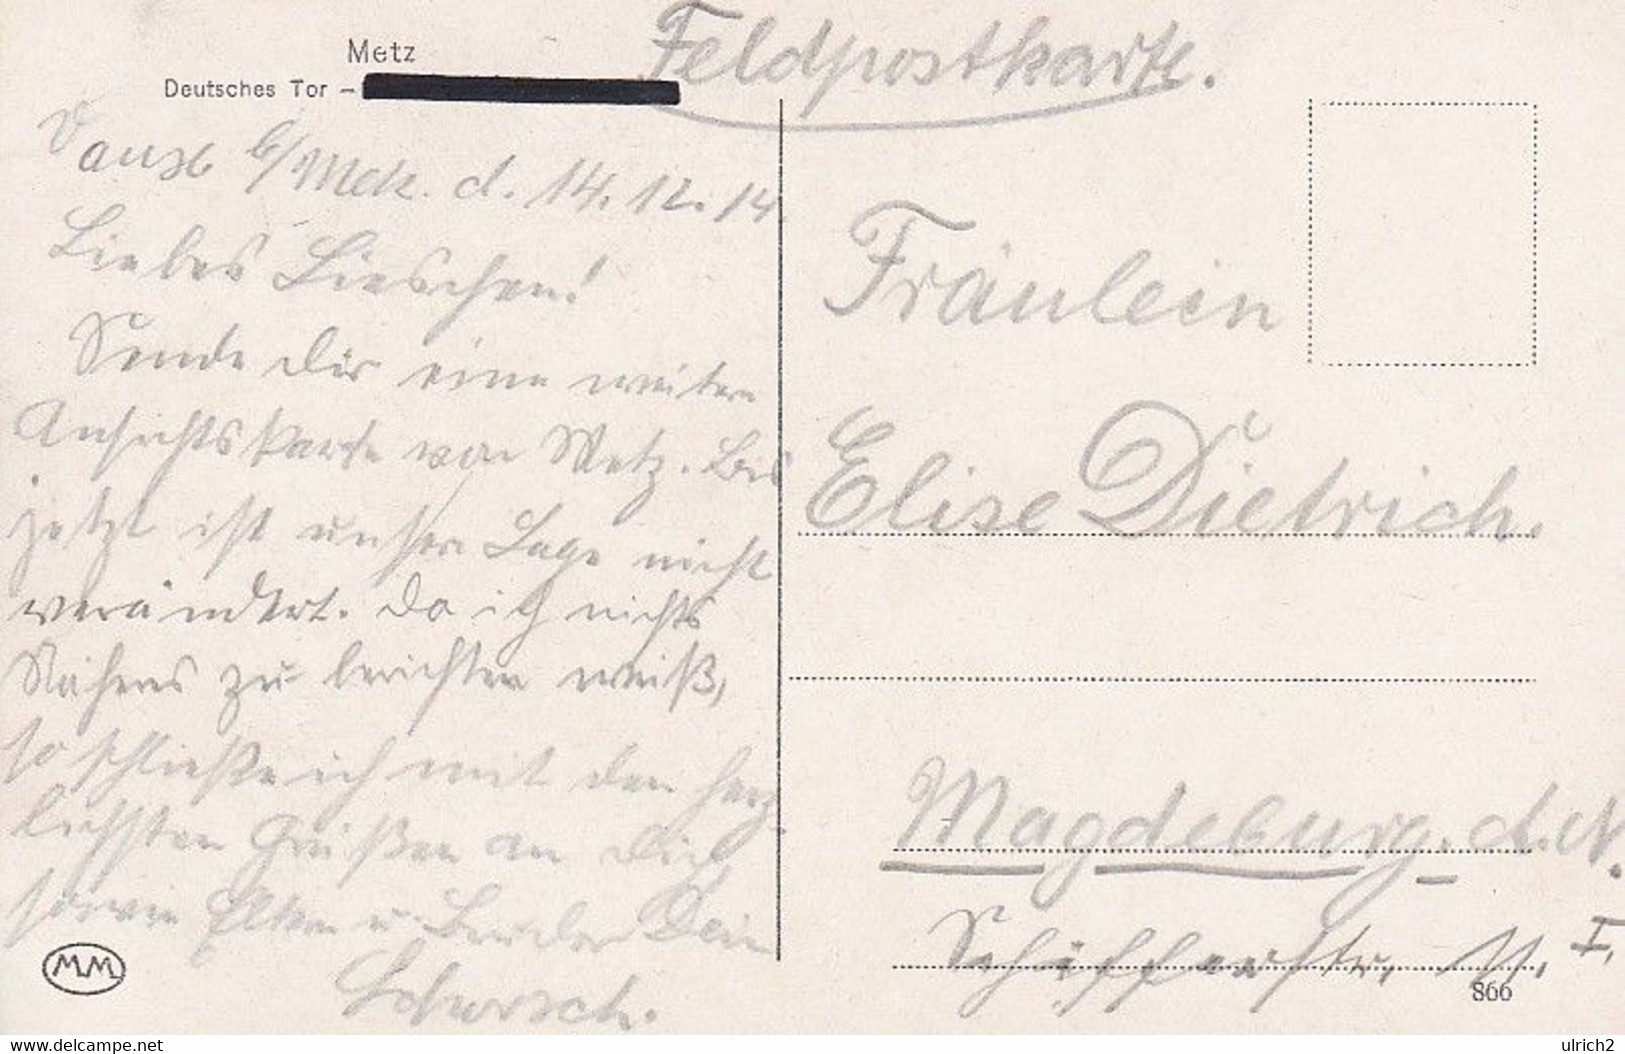 Metz
Deutsches Tor –
Feldpostkarte.
b/Metz. d. 14.12.14.
Liebes Lieschen!
Sende Dir eine weitere
Ansichtskarte von Metz. Bis
jetzt ist unsere Lage nicht
verändert. Da ich nichts
Näheres zu berichten weiß,
so schließe ich mit den herz-
lichsten Grüßen an Dich
sowie Eltern u. Bruder Dein
Fräulein
Elise Dietrich.
Magdeburg. d. N.
Schifferstr. 11. I.
MM
866
www.delcampe.net
ulrich2